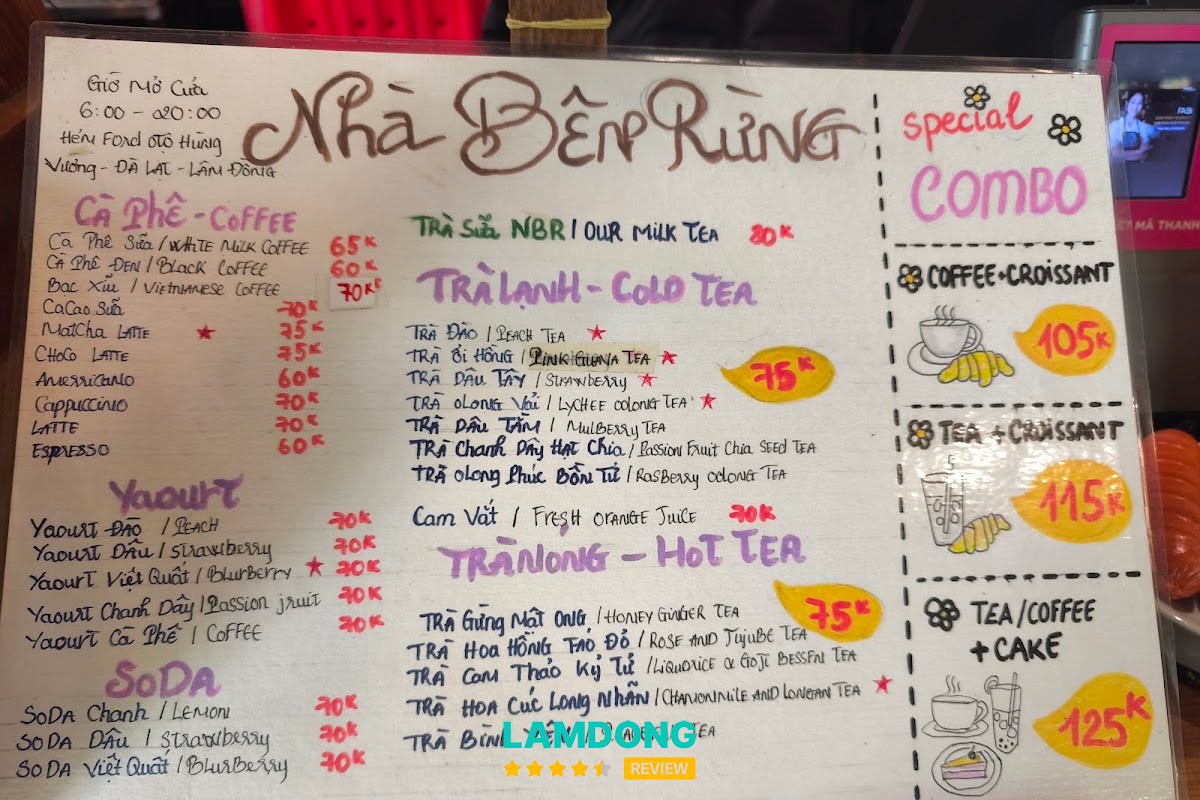 Giờ Mở Cửa
6:00 - 20:00
Hẻm Ford Ôtô Hùng
Vương - ĐÀ LẠT - LÂM ĐỒNG
Nhà BÊN RỪNG
CÀ Phê - COFFEE
Cà Phê Sữa / WHITE MILK COFFEE 65K
CÀ Phê ĐEN / BLACK COFFEE 60K
Bạc Xỉu / VIETNAMESE COFFEE 70K
CaCao Sữa 70K
MatCha LATTE 75K
CHOCO LATTE 75K
Americano 60K
Cappuccino 70K
LATTE 70K
ESPRESSO 60K
YaourT
YaourT ĐÀO / PEACH 70K
YaourT DÂU / Strawberry 70K
YaourT Việt Quất / BlurBerry 70K
YaourT Chanh Dây / Passion fruit 70K
YaourT Cà Phê / COFFEE 70K
SoDA
SoDA Chanh / LEMON 70K
SODA DÂU / Strawberry 70K
SODA Việt Quất / BlurBerry 70K
TRÀ Sữa NBR / OUR MILK TEA 80K
TRÀ LẠNH - COLD TEA
TRÀ ĐÀO / PEACH TEA
TRÀ ỔI HỒNG / PINK GUAVA TEA
75K
TRÀ DÂU TÂY / STRAWBERRY
TRÀ OLONG Vải / LYCHEE OOLONG TEA
TRÀ DÂU TẰM / MULBERRY TEA
TRÀ Chanh DÂY HẠT Chia / Passion Fruit Chia SEED TEA
TRÀ OLONG Phúc BỒN TỬ / RASBERRY OOLONG TEA
Cam VẮT / FRESH ORANGE JUICE 70K
TRÀ NÓNG - HOT TEA
75K
TRÀ GỪNG MẬT ONG / HONEY GINGER TEA
TRÀ HOA HỒNG TÁO ĐỎ / ROSE AND JUJUBE TEA
TRÀ CAM THẢO KỶ TỬ / LIQUORICE & GOJI
TRÀ HOA CÚC LONG NHÃN / CHAMONMILE AND LONGAN TEA
TRÀ TEA
special
COMBO
COFFEE+CROISSANT
105K
TEA + CROISSANT
115K
TEA/COFFEE
+ CAKE
125K
MÃ THANH
LAMDONG
REVIEW